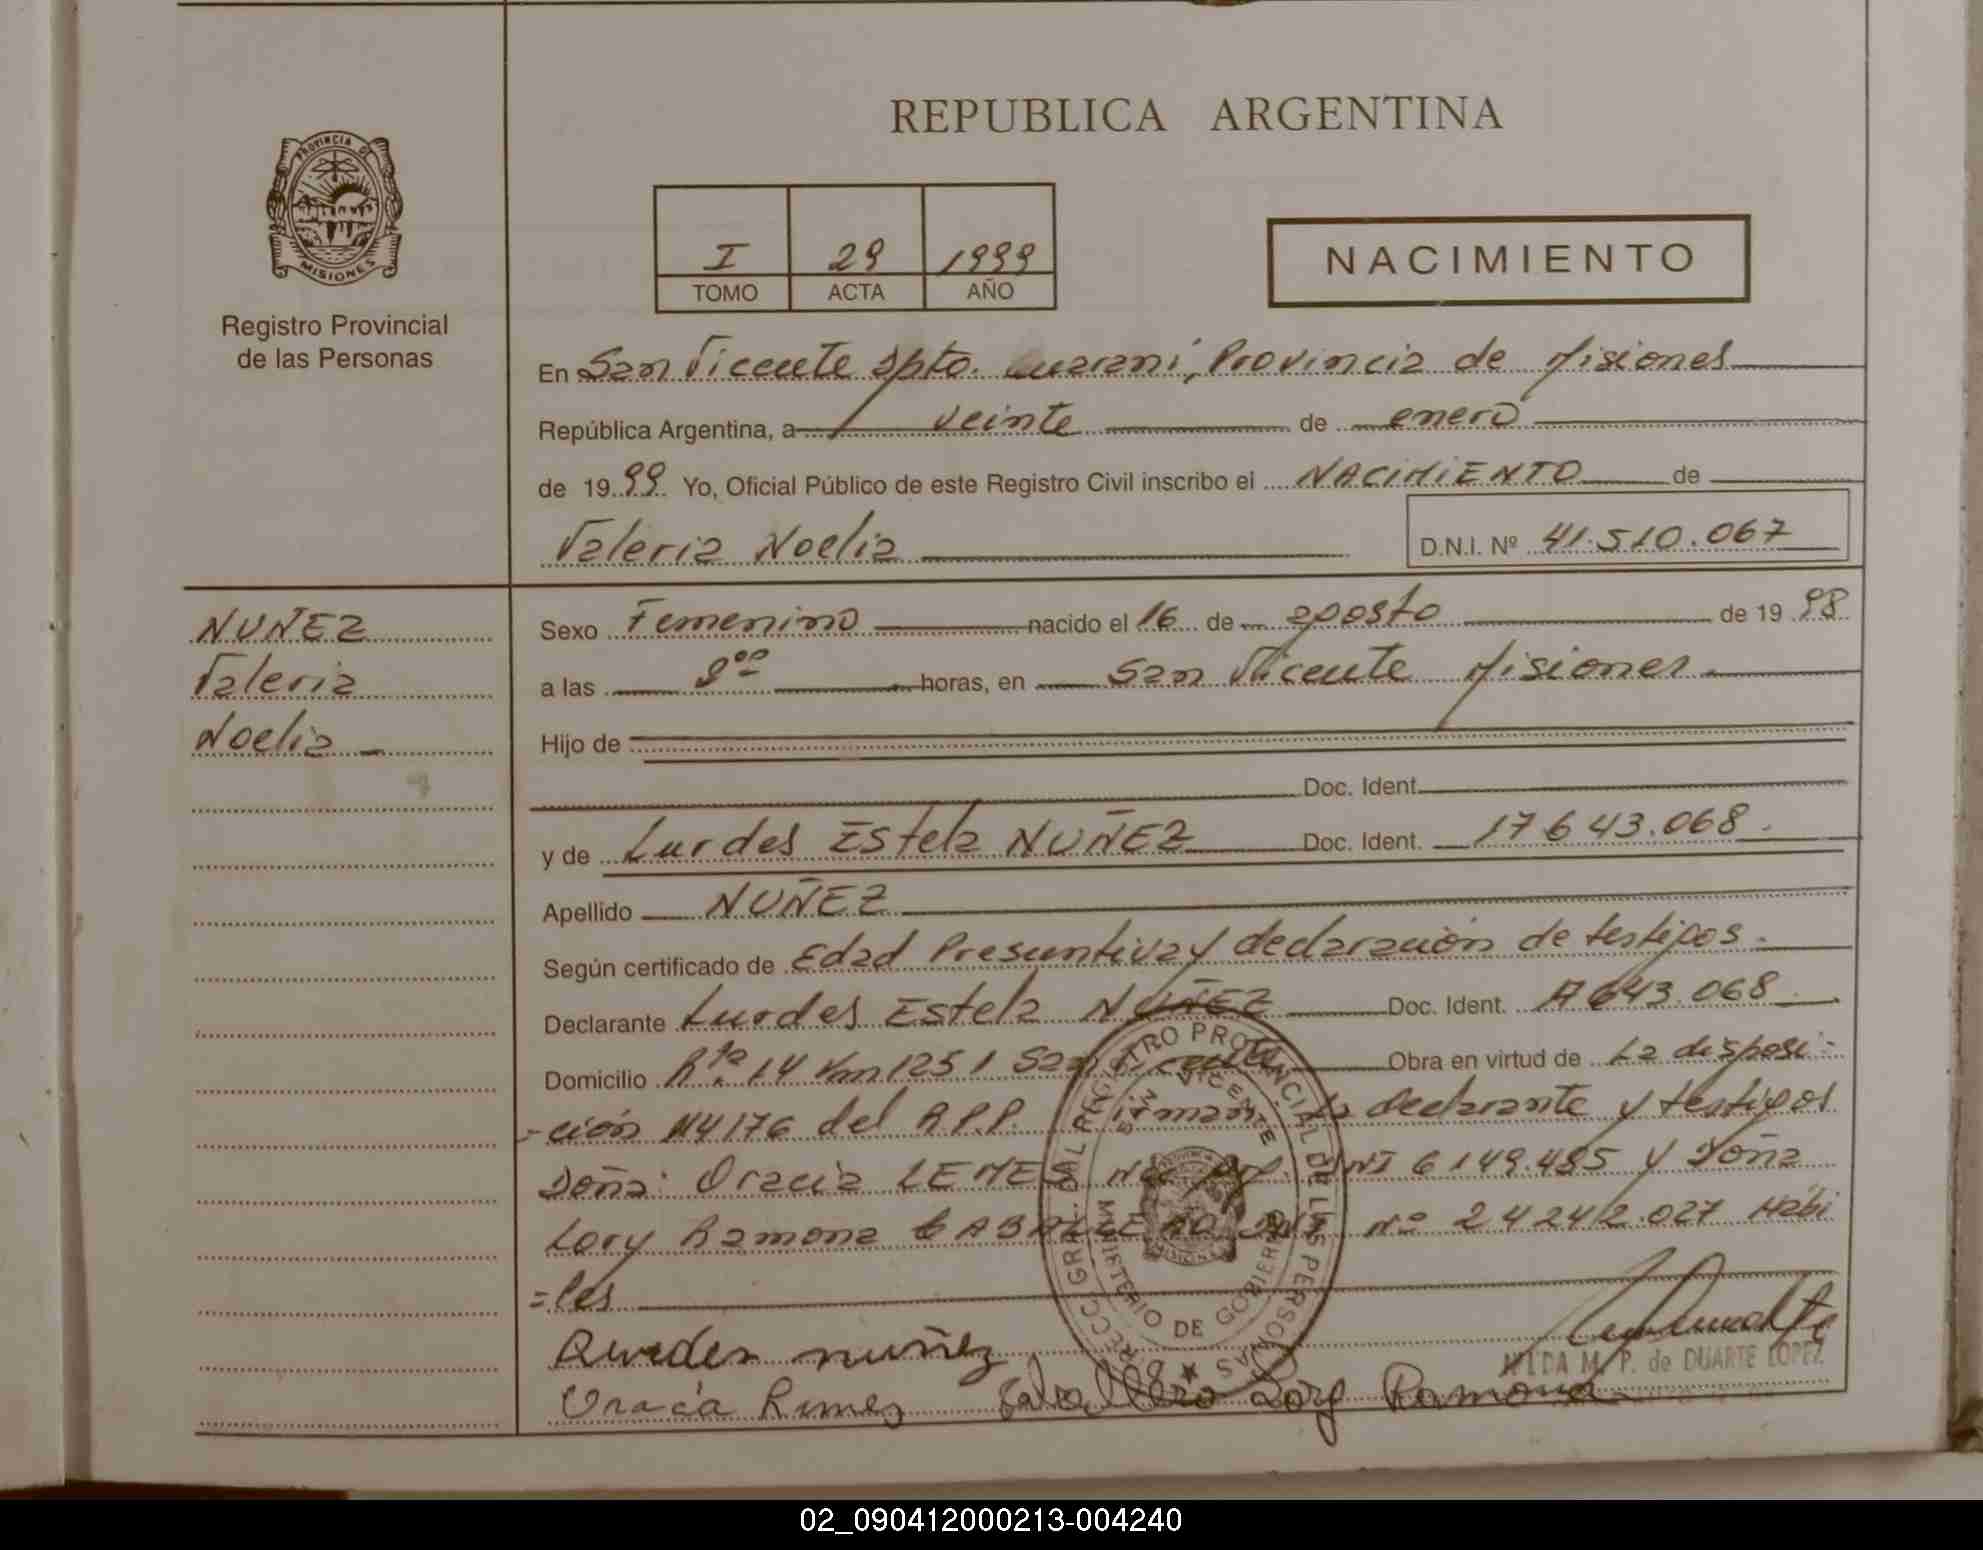 REPUBLICA ARGENTINA
PROVINCIA DE
MISIONES
Registro Provincial
de las Personas
I 29 1999
TOMO ACTA AÑO
NACIMIENTO
En San Vicente Dpto. Guarani, Provincia de Misiones
República Argentina, a veinte de enero
de 1999 Yo, Oficial Público de este Registro Civil inscribo el NACIMIENTO de
Valeria Noelia D.N.I. Nº 41.510.067
NUÑEZ
Valeria
Noelia
Sexo Femenino nacido el 16 de agosto de 1998
a las 8ºº horas, en San Vicente Misiones
Hijo de
Doc. Ident.
y de Lurdes Estela NUÑEZ Doc. Ident. 17643.068.
Apellido NUÑEZ
Según certificado de Edad Presuntiva y declaración de testigos.
Declarante Lurdes Estela NUÑEZ Doc. Ident. 17643.068
Domicilio Rta. 14 Km 1251 San Vicente Obra en virtud de La disposi-
-ción Nº 4176 del R.P.P. Firman: La declarante y testigos
Doña: Oracia LEMES DNI 6149.485 y Doña
Lory Ramona CABALLERO DNI nº 24242.027 Habi
=les
Lurdes nuñez
HILDA M. P. de DUARTE LOPEZ
Oracia Lemes Caballero Lory Ramona
DIRECC. GRAL. DEL REGISTRO PROVINCIAL DE LAS PERSONAS
SAN VICENTE
MINISTERIO DE GOBIERNO
02_090412000213-004240